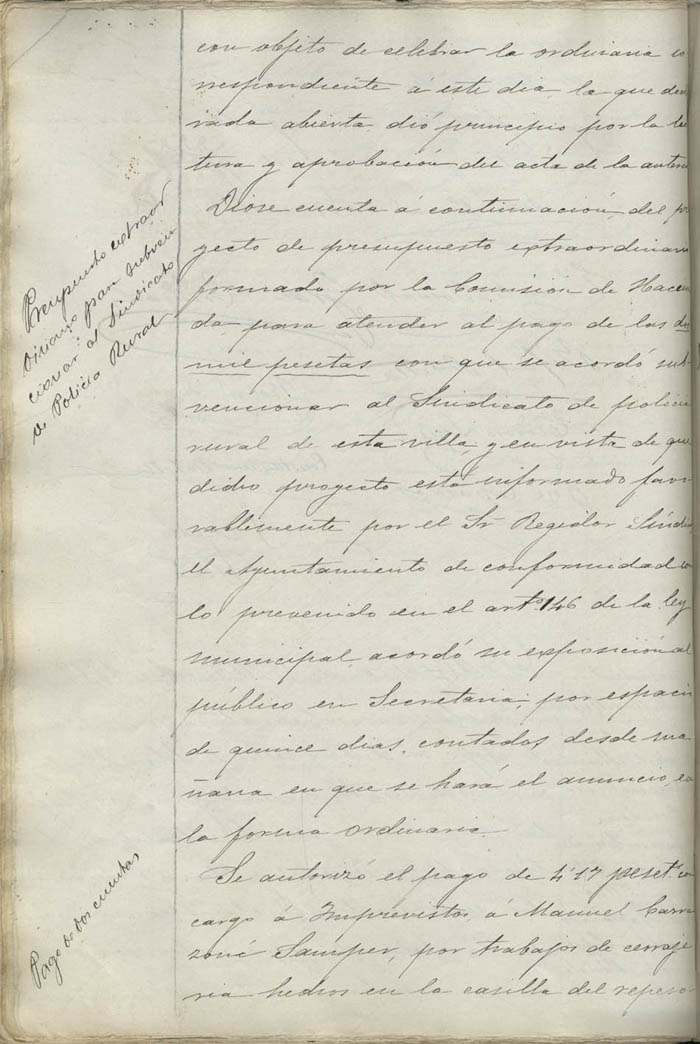 con objeto de celebrar la ordinaria co
rrespondiente á este dia, la que decla
rada abierta, dió principio por la lec
tura y aprobación del acta de la anteri
Presupuesto extraor
dinario para subven
cionar al Sindicato
de Policia Rural
Dióse cuenta á continuación, del pro
yecto de presupuesto extraordinari
formado por la Comisión de Hacien
da, para atender al pago de las dos
mil pesetas con que se acordó sub-
vencionar al Sindicato de policia
rural de esta villa, y en vista de que
dicho proyecto está informado favo
rablemente por el Sr Regidor Síndic
el Ayuntamiento de conformidad co
lo prevenido en el arto 146 de la ley
municipal, acordó su exposición al
público en Secretaria, por espacio
de quince dias, contados desde ma
ñana en que se hará el anuncio, en
la forma ordinaria.
Pago de dos cuentas
Se autorizó el pago de 4'17 peset. co
cargo á Imprevistos, á Manuel Carra
toné Samper, por trabajos de cerraje
ria hechos en la casilla del repeso